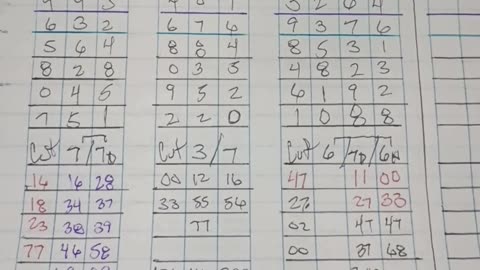 6 3 2 6 7 6 9 3 7 6
5 6 4 8 8 4 8 5 3 1
8 2 8 0 3 5 4 8 2 3
0 4 5 9 5 2 6 1 9 2
7 5 1 2 2 0 1 0 8 8
Cut 7/ Cut 3/7 Cut 6
14 16 28 00 12 16 47 11 00
18 34 37 33 55 56 27 27 33
23 39 77 02 47 47
77 46 58 00 37 68